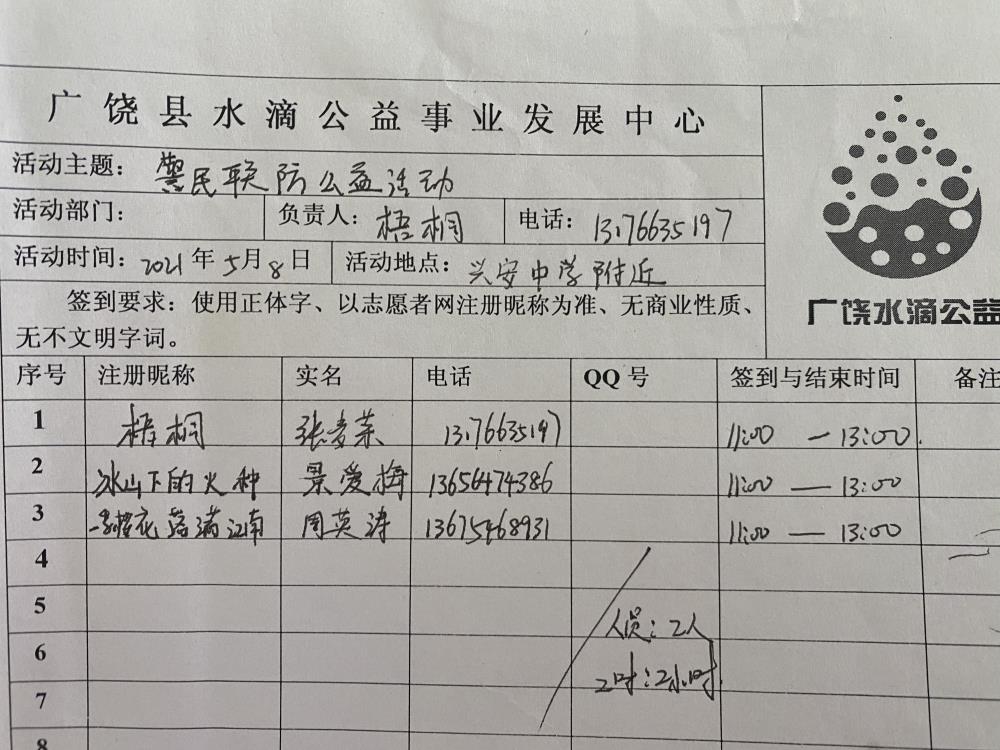 广饶县水滴公益事业发展中心
活动主题： 警民联防公益活动
活动部门： 负责人： 梧桐 电话： 13176635197
活动时间： 2021年5月8日 活动地点： 兴安中学附近
签到要求：使用正体字、以志愿者网注册昵称为准、无商业性质、
无不文明字词。
广饶水滴公益
序号 注册昵称 实名 电话 QQ号 签到与结束时间 备注
1 梧桐 张 荣 13176635197 11:00 — 13:00
2 冰山下的火种 景爱梅 13656474386 11:00 — 13:00
3 樱花落满江南 周英涛 13675468931 11:00 — 13:00
4
5
人员：2人
6
工时：2小时
7
8